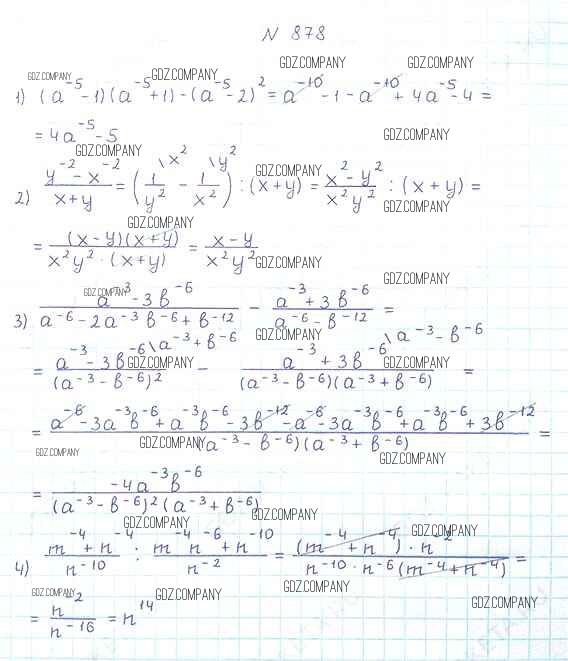 N 878
1) (a⁻⁵ - 1)(a⁻⁵ + 1) - (a⁻⁵ - 2)² = a⁻¹⁰ - 1 - a⁻¹⁰ + 4a⁻⁵ - 4 =
= 4a⁻⁵ - 5
2) (y⁻² - x⁻²)/(x + y) = (1/y² \x² - 1/x² \y²) : (x + y) = (x² - y²)/(x²y²) : (x + y) =
= (x - y)(x + y)/(x²y² · (x + y)) = (x - y)/(x²y²)
3) (a⁻³ - 3b⁻⁶)/(a⁻⁶ - 2a⁻³b⁻⁶ + b⁻¹²) - (a⁻³ + 3b⁻⁶)/(a⁻⁶ - b⁻¹²) =
= (a⁻³ - 3b⁻⁶)/(a⁻³ - b⁻⁶)² \a⁻³ + b⁻⁶ - (a⁻³ + 3b⁻⁶)/((a⁻³ - b⁻⁶)(a⁻³ + b⁻⁶)) \a⁻³ - b⁻⁶ =
= (a⁻⁶ - 3a⁻³b⁻⁶ + a⁻³b⁻⁶ - 3b⁻¹² - a⁻⁶ - 3a⁻³b⁻⁶ + a⁻³b⁻⁶ + 3b⁻¹²)/((a⁻³ - b⁻⁶)(a⁻³ + b⁻⁶)) =
= -4a⁻³b⁻⁶/((a⁻³ - b⁻⁶)²(a⁻³ + b⁻⁶))
4) (m⁻⁴ + n⁻⁴)/n⁻¹⁰ : (m⁻⁴n⁻⁶ + n⁻¹⁰)/n⁻² = (m⁻⁴ + n⁻⁴) · n⁻²/(n⁻¹⁰ · n⁻⁶(m⁻⁴ + n⁻⁴)) =
= n⁻²/n⁻¹⁶ = n¹⁴
GDZ.COMPANY